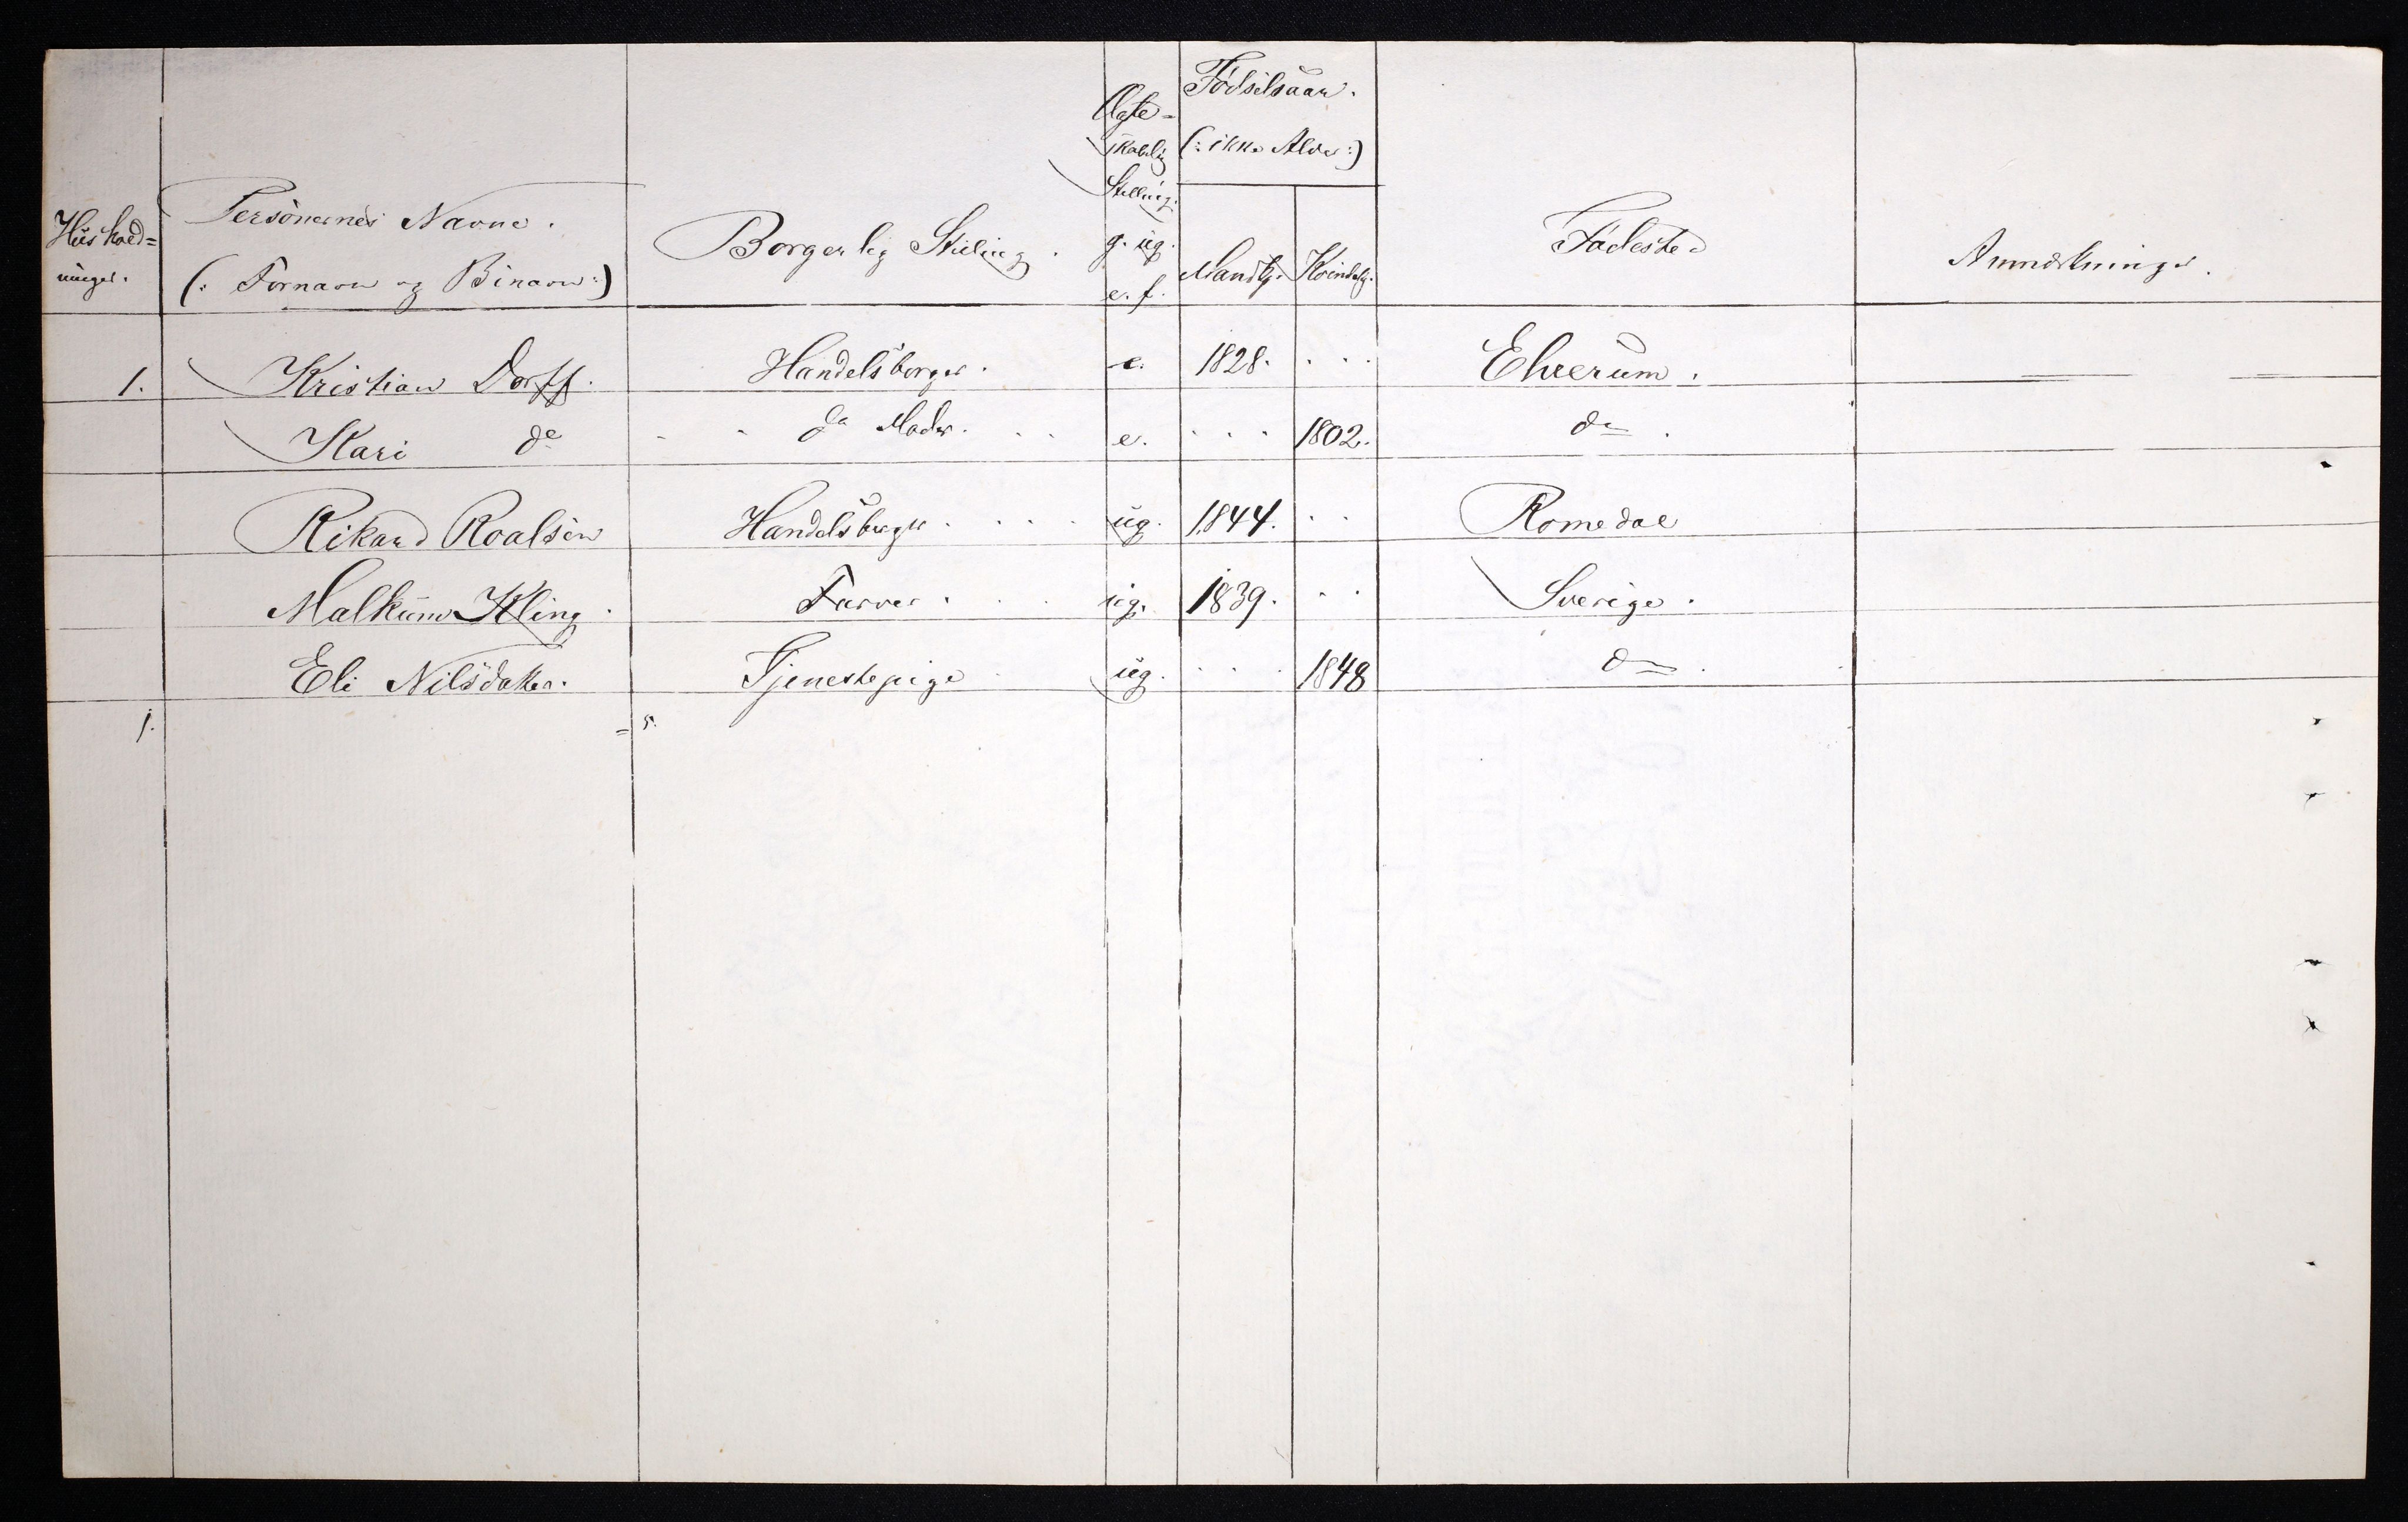 Hushold=
ninger.
Personernes Navne.
(: Fornavn og Binavn :)
Borgerlig Stilling.
Ægte=
skabelig
Stilling.
g. ug.
e. f.
Fødselsaar.
(: ikke Alder :)
Mandkj.
Kvindekj.
Fødested
Anmærkninger.
1. Kristian Dorff. Handelsborger. e. 1828. Elverum.
Kari do do Moder. e. 1802. do.
Rikard Roalsen Handelsborger ug. 1844. Romedal
Malkum Kling. Farver ug. 1839. Sverige.
Eli Nilsdatter. Tjenestepige ug. 1848 do
1. = 5.